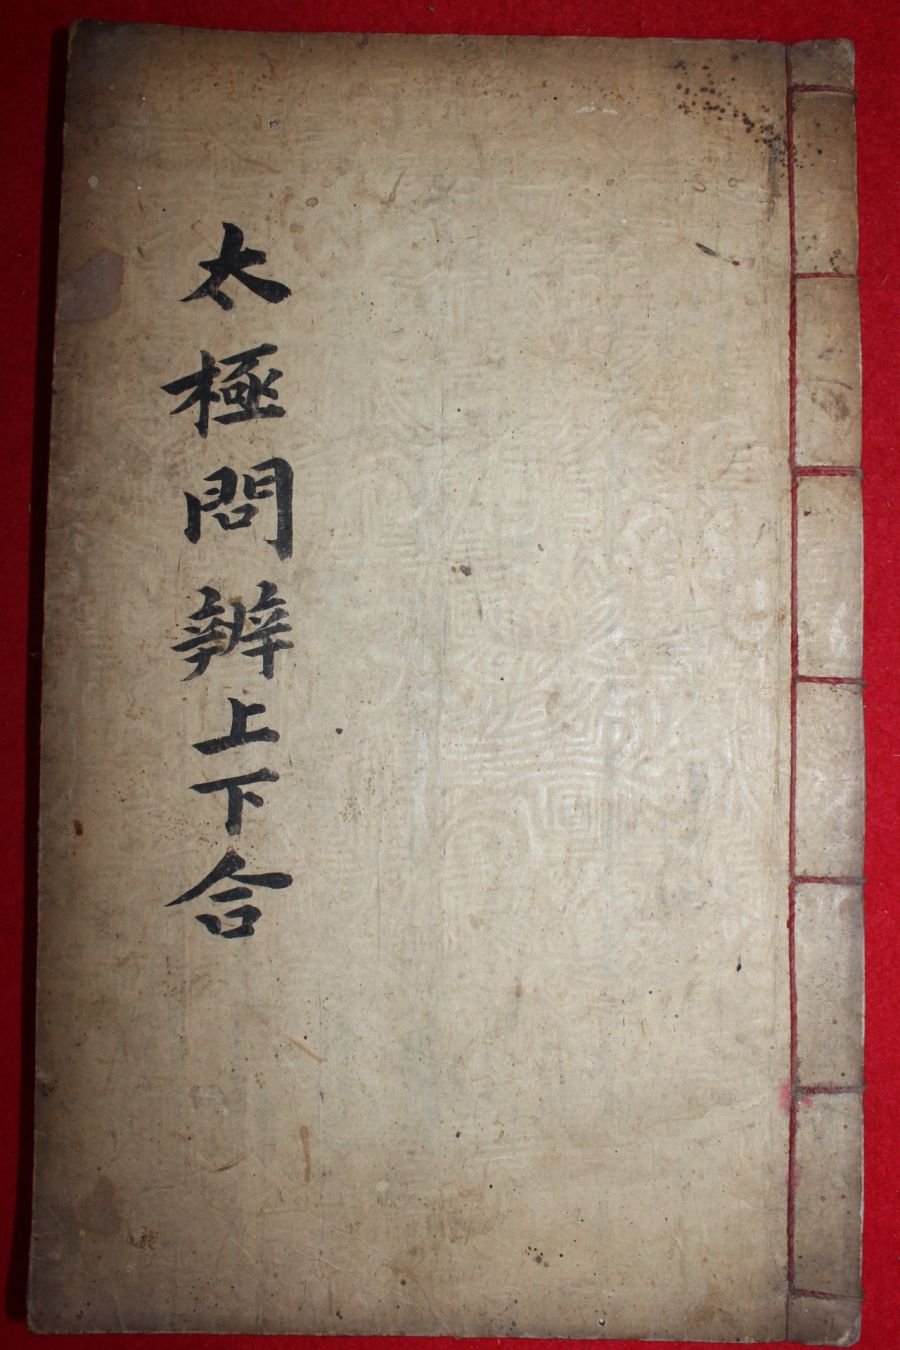 太極問辨上下合